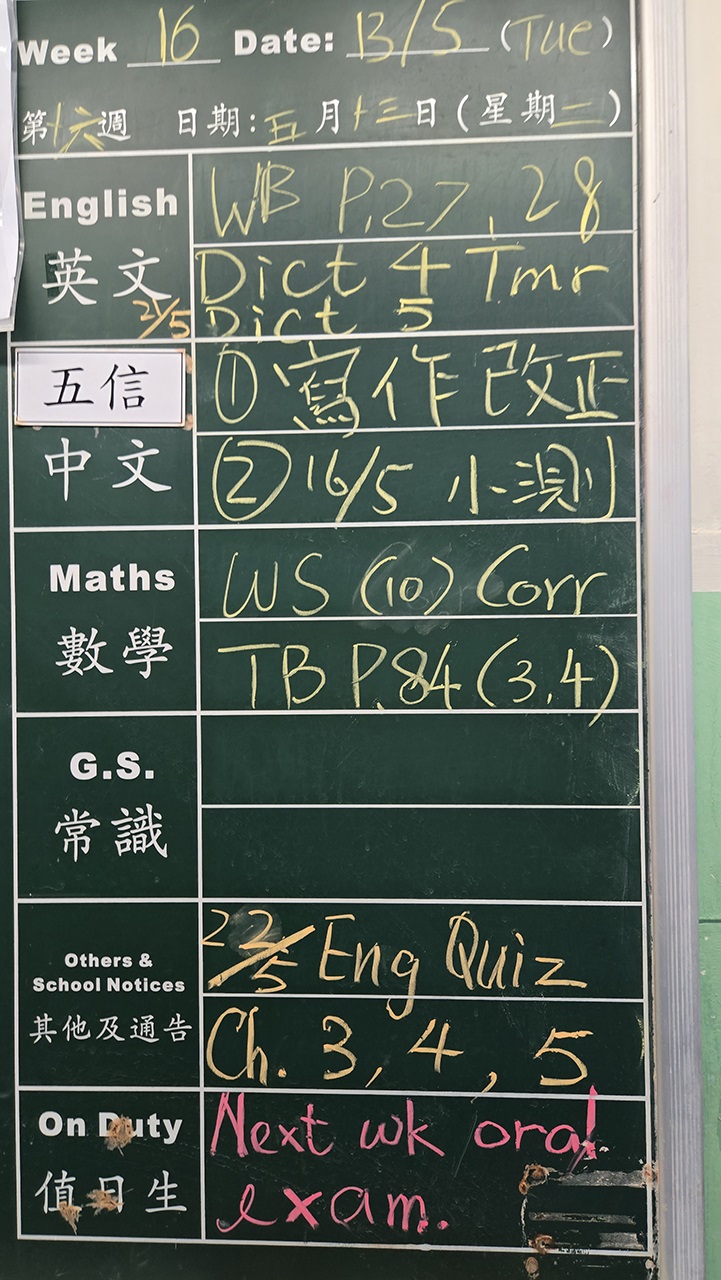 Week 16 Date: 13/5 (Tue)
第十六週 日期:五月十三日(星期二)
English
英文
WB P.27, 28
Dict 4 Tmr
21/5 Dict 5
五信
中文
① 寫作改正
② 16/5 小測
Maths
數學
WS (10) Corr
TB P.84 (3,4)
G.S.
常識
Others &
School Notices
其他及通告
22/5 Eng Quiz
Ch. 3, 4, 5
On Duty
值日生
Next wk oral
exam.